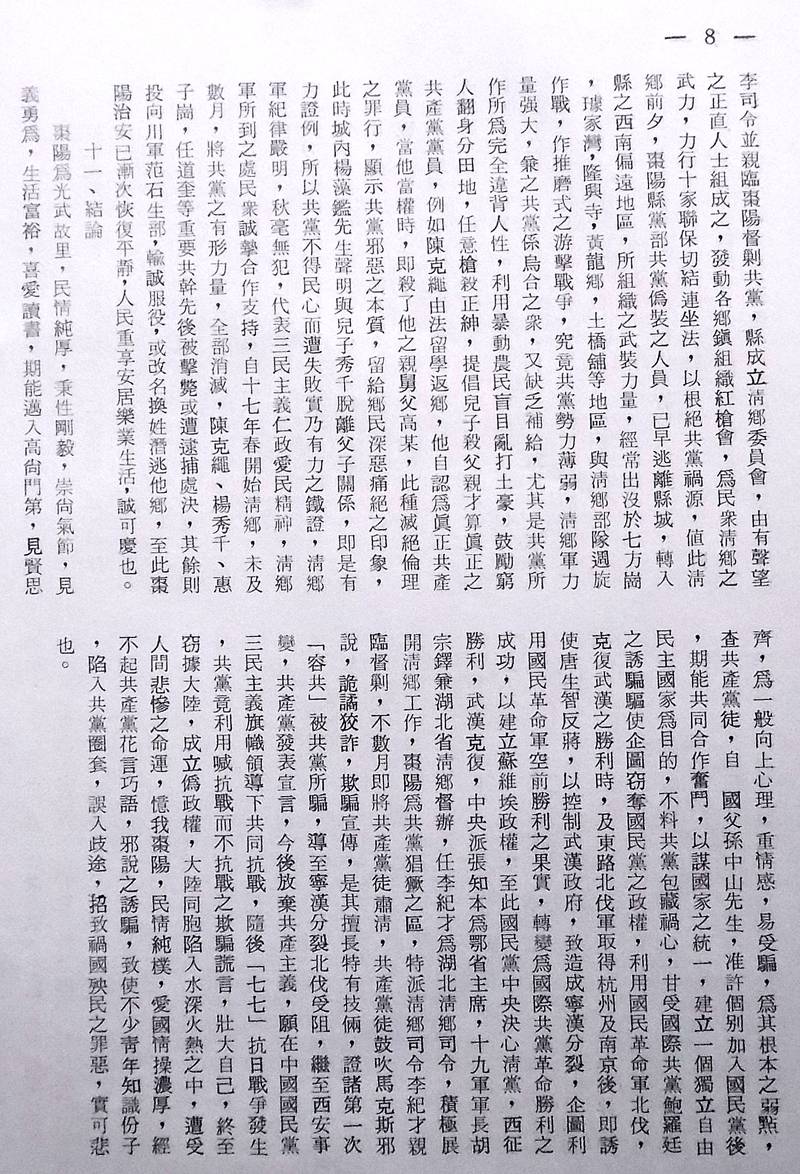 — 8 —
李司令並親臨棗陽督剿共黨，縣成立淸鄉委員會，由有聲望
之正直人士組成之，發動各鄉鎭組織紅槍會，爲民衆淸鄉之
武力，力行十家聯保切結連坐法，以根絕共黨禍源，値此淸
鄉前夕，棗陽縣黨部共黨僞裝之人員，已早逃離縣城，轉入
縣之西南偏遠地區，所組織之武裝力量，經常出沒於七方崗
，璩家灣，隆興寺，黃龍鄉，土橋舖等地區，與淸鄉部隊週旋
作戰，作推磨式之游擊戰爭，究竟共黨勢力薄弱，淸鄉軍力
量强大，兼之共黨係烏合之衆，又缺乏補給，尤其是共黨所
作所爲完全違背人性，利用暴動農民盲目亂打土豪，鼓勵窮
人翻身分田地，任意槍殺正紳，提倡兒子殺父親才算眞正之
共產黨黨員，例如陳克繩由法留學返鄉，他自認爲眞正共產
黨員，當他當權時，即殺了他之親舅父高某，此種滅絕倫理
之罪行，顯示共黨邪惡之本質，留給鄉民深惡痛絕之印象，
此時城內楊藻鑑先生聲明與兒子秀千脫離父子關係，即是有
力證例，所以共黨不得民心而遭失敗實乃有力之鐵證，淸鄉
軍紀律嚴明，秋毫無犯，代表三民主義仁政愛民精神，淸鄉
軍所到之處民衆誠摯合作支持，自十七年春開始淸鄉，未及
數月，將共黨之有形力量，全部消滅，陳克繩、楊秀千、惠
子崗，任道奎等重要共幹先後被擊斃或遭逮捕處決，其餘則
投向川軍范石生部，輸誠服役，或改名換姓潛逃他鄉，至此棗
陽治安已漸次恢復平靜，人民重享安居樂業生活，誠可慶也。
十一、結論
棗陽爲光武故里，民情純厚，秉性剛毅，崇尙氣節，見
義勇爲，生活富裕，喜愛讀書，期能邁入高尙門第，見賢思
齊，爲一般向上心理，重情感，易受騙，爲其根本之弱點，
查共產黨徒，自　國父孫中山先生，准許個別加入國民黨後
，期能共同合作奮鬥，以謀國家之統一，建立一個獨立自由
民主國家爲目的，不料共黨包藏禍心，甘受國際共黨鮑羅廷
之誘騙驅使企圖窃奪國民黨之政權，利用國民革命軍北伐，
克復武漢之勝利時，及東路北伐軍取得杭州及南京後，即誘
使唐生智反蔣，以控制武漢政府，致造成寧漢分裂，企圖利
用國民革命軍空前勝利之果實，轉變爲國際共黨革命勝利之
成功，以建立蘇維埃政權，至此國民黨中央決心淸黨，西征
勝利，武漢克復，中央派張知本爲鄂省主席，十九軍軍長胡
宗鐸兼湖北省淸鄉督辦，任李紀才爲湖北淸鄉司令，積極展
開淸鄉工作，棗陽爲共黨猖獗之區，特派淸鄉司令李紀才親
臨督剿，不數月即將共產黨徒肅淸，共產黨徒鼓吹馬克斯邪
說，詭譎狡詐，欺騙宣傳，是其擅長特有技倆，證諸第一次
「容共」被共黨所騙，導至寧漢分裂北伐受阻，繼至西安事
變，共產黨發表宣言，今後放棄共產主義，願在中國國民黨
三民主義旗幟領導下共同抗戰，隨後「七七」抗日戰爭發生
，共黨竟利用喊抗戰而不抗戰之欺騙謊言，壯大自己，終至
窃據大陸，成立僞政權，大陸同胞陷入水深火熱之中，遭受
人間悲慘之命運，憶我棗陽，民情純樸，愛國情操濃厚，經
不起共產黨花言巧語，邪說之誘騙，致使不少靑年知識份子
，陷入共黨圈套，誤入歧途，招致禍國殃民之罪惡，實可悲
也。